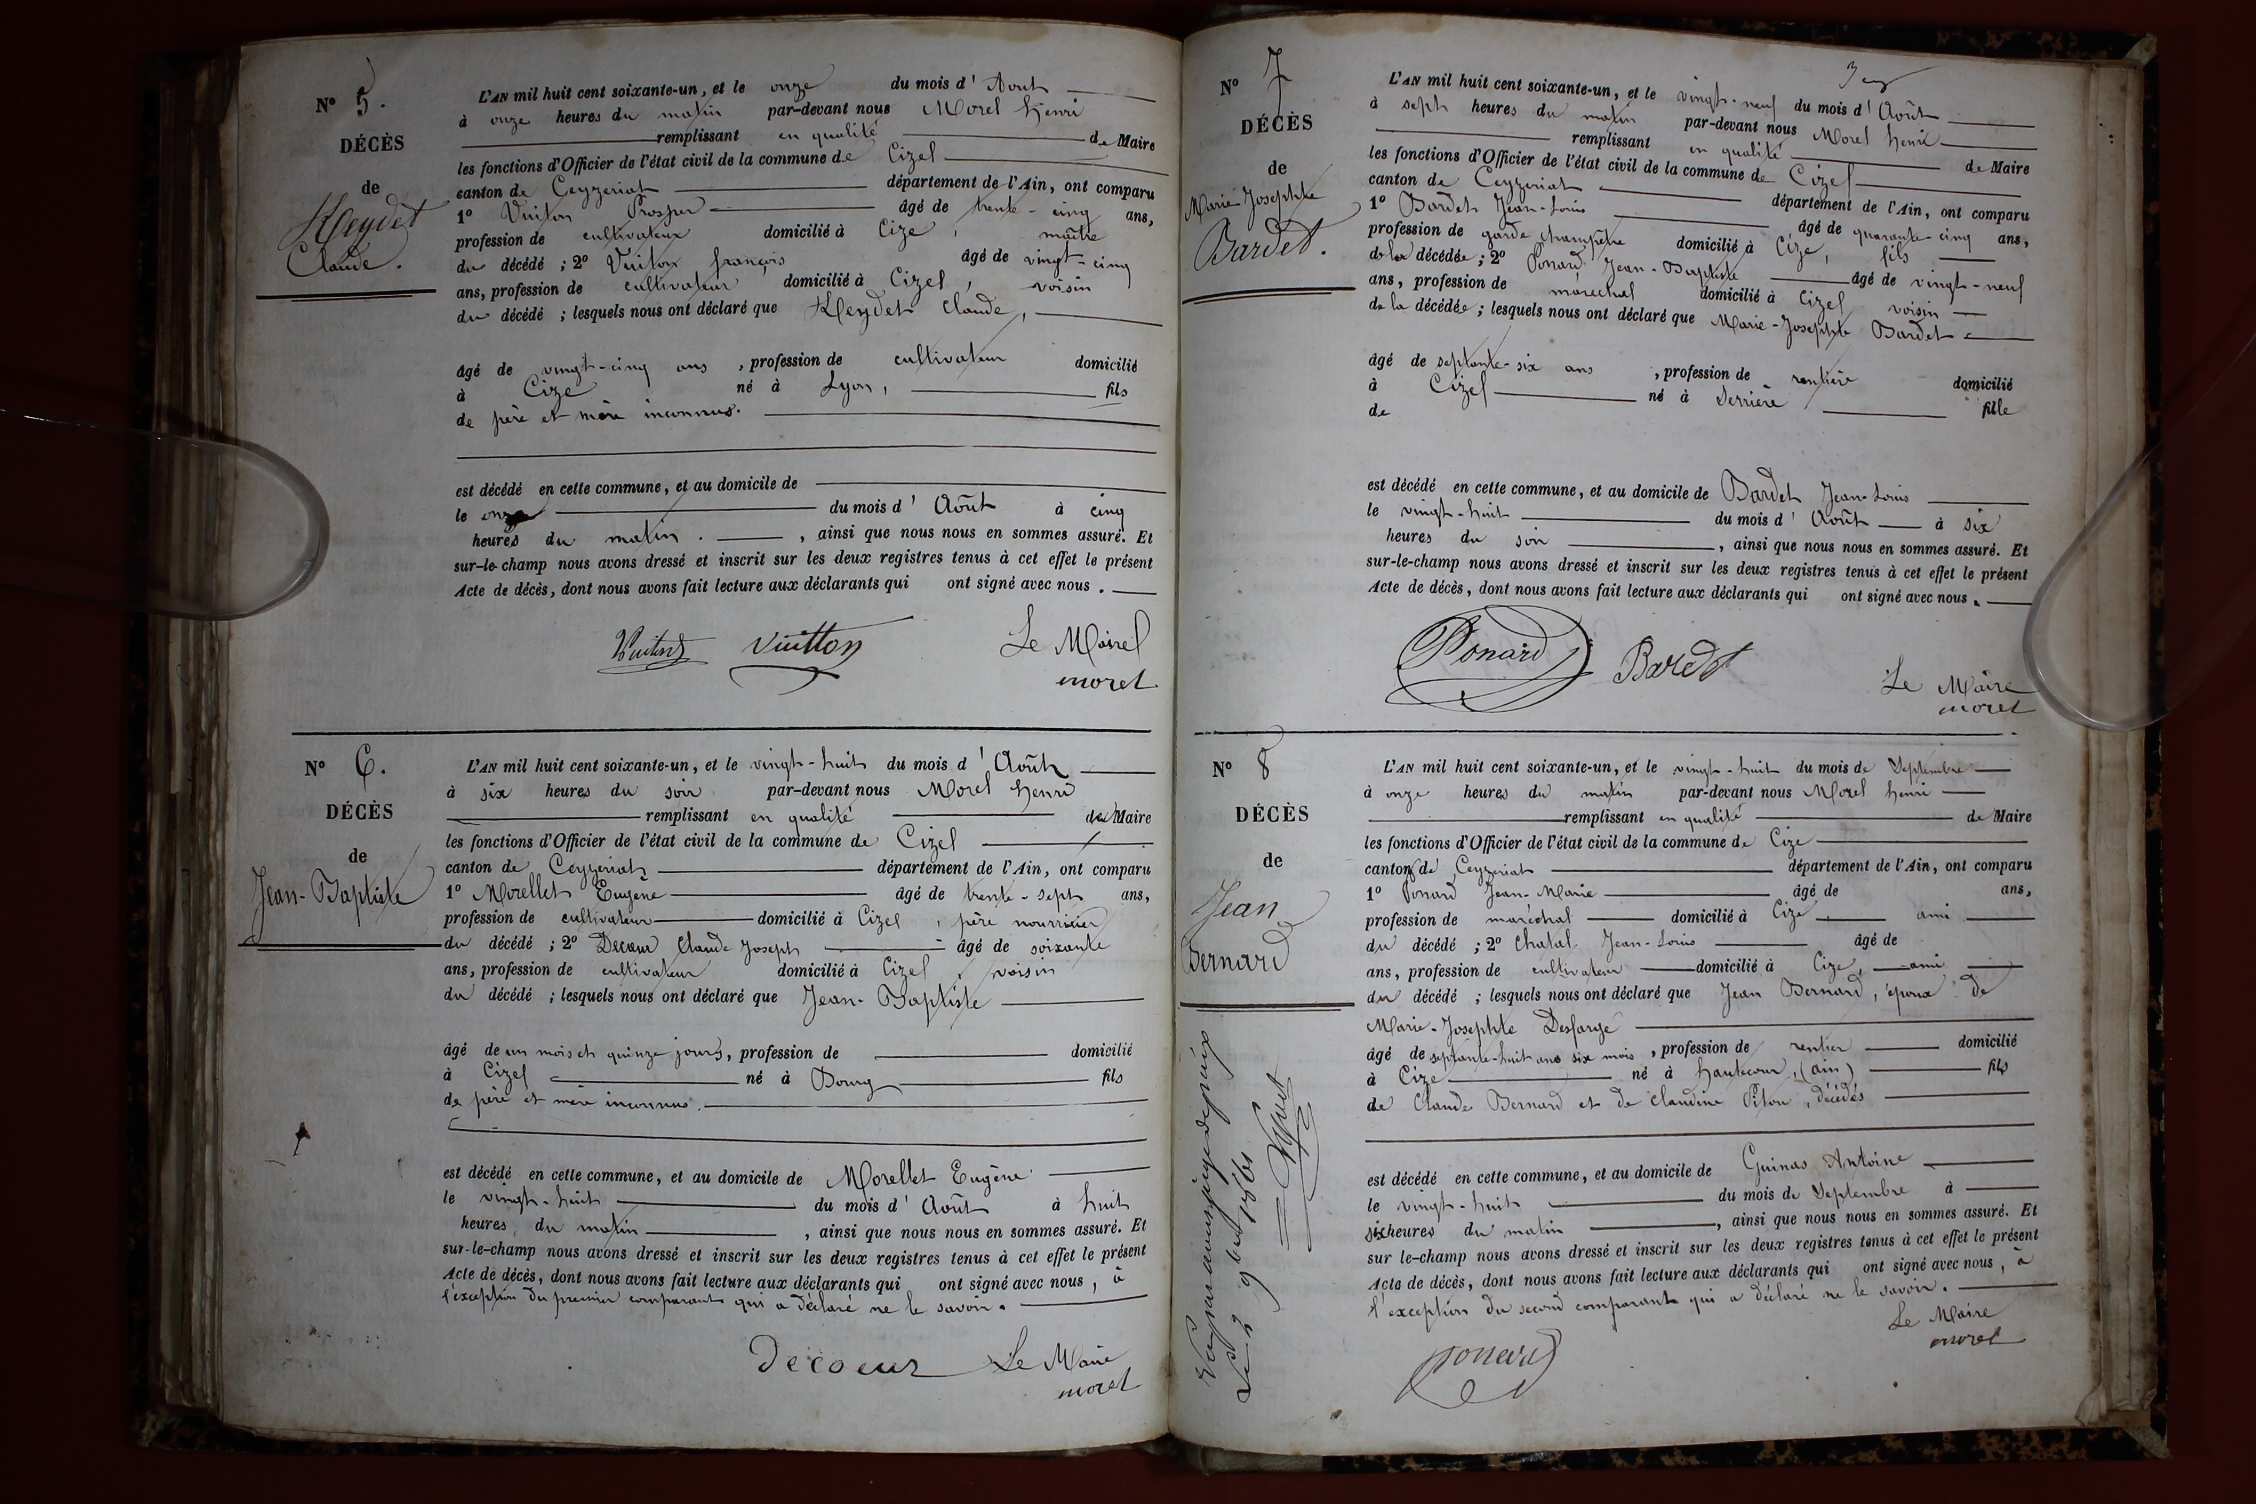 N° 5.
DÉCÈS
de
Heydet
Claude.
L'AN mil huit cent soixante-un, et le onze du mois d'Aout
à onze heures du matin par-devant nous Morel henri
remplissant en qualité de Maire
les fonctions d'Officier de l'état civil de la commune de Cizel
canton de Ceyzeriat département de l'Ain, ont comparu
1° Vuiton Prosper âgé de trente-cinq ans,
profession de cultivateur domicilié à Cize, maître
du décédé ; 2° Vuiton françois âgé de vingt-cinq
ans, profession de cultivateur domicilié à Cizel, voisin
du décédé ; lesquels nous ont déclaré que Heydet Claude,
âgé de vingt-cinq ans, profession de cultivateur domicilié
à Cize né à Lyon, fils
de père et mère inconnus.
est décédé en cette commune, et au domicile de
le onze du mois d'Août à cinq
heures du matin. , ainsi que nous nous en sommes assuré. Et
sur-le-champ nous avons dressé et inscrit sur les deux registres tenus à cet effet le présent
Acte de décès, dont nous avons fait lecture aux déclarants qui ont signé avec nous.
Vuitton Le Mairel
morel
N° 6.
DÉCÈS
de
Jean-Baptiste
L'AN mil huit cent soixante-un, et le vingt-huit du mois d'Août
à six heures du soir par-devant nous Morel henri
remplissant en qualité de Maire
les fonctions d'Officier de l'état civil de la commune de Cizel
canton de Ceyzeriat département de l'Ain, ont comparu
1° Morellet Eugène âgé de trente-sept ans,
profession de cultivateur domicilié à Cizel, père nourricier
du décédé ; 2° Decœur Claude Joseph âgé de soixante
ans, profession de cultivateur domicilié à Cizel, voisin
du décédé ; lesquels nous ont déclaré que Jean-Baptiste
âgé de un mois et quinze jours, profession de domicilié
à Cizel né à Bourg fils
de père et mère inconnus.
est décédé en cette commune, et au domicile de Morellet Eugène
le vingt-huit du mois d'Août à huit
heures du matin , ainsi que nous nous en sommes assuré. Et
sur-le-champ nous avons dressé et inscrit sur les deux registres tenus à cet effet le présent
Acte de décès, dont nous avons fait lecture aux déclarants qui ont signé avec nous, à
l'exception du premier comparant qui a déclaré ne le savoir.
Decoeur Le Maire
morel
N° 7
DÉCÈS
de
Marie-Josephte
Bardet.
L'AN mil huit cent soixante-un, et le vingt-neuf du mois d'Août
à sept heures du matin par-devant nous Morel henri
remplissant en qualité de Maire
les fonctions d'Officier de l'état civil de la commune de Cizel
canton de Ceyzeriat département de l'Ain, ont comparu
1° Bardet Jean-Louis âgé de quarante-cinq ans,
profession de garde champêtre domicilié à Cize, fils
de la décédée ; 2° Ponard Jean-Baptiste âgé de vingt-neuf
ans, profession de maréchal domicilié à Cizel voisin
de la décédée ; lesquels nous ont déclaré que Marie-Josephte Bardet
âgé de septante-six ans, profession de rentière domicilié
à Cizel né à Serrière fille
de
est décédé en cette commune, et au domicile de Bardet Jean-Louis
le vingt-huit du mois d'Août à six
heures du soir , ainsi que nous nous en sommes assuré. Et
sur-le-champ nous avons dressé et inscrit sur les deux registres tenus à cet effet le présent
Acte de décès, dont nous avons fait lecture aux déclarants qui ont signé avec nous.
Ponard Bardet Le Maire
morel
N° 8
DÉCÈS
de
Jean
Bernard
L'AN mil huit cent soixante-un, et le vingt-huit du mois de Septembre
à onze heures du matin par-devant nous Morel henri
remplissant en qualité de Maire
les fonctions d'Officier de l'état civil de la commune de Cize
canton de Ceyzeriat département de l'Ain, ont comparu
1° Ponard Jean-Marie âgé de ans,
profession de maréchal domicilié à Cize ami
du décédé ; 2° Chatal Jean-Louis âgé de
ans, profession de cultivateur domicilié à Cize, ami
du décédé ; lesquels nous ont déclaré que Jean Bernard, époux de
Marie-Josephte Desfarge
âgé de septante-huit ans six mois, profession de rentier domicilié
à Cize né à hautecour, (ain) fils
de Claude Bernard et de Claudine Piton, décédés
est décédé en cette commune, et au domicile de Guinas Antoine
le vingt-huit du mois de Septembre à
six heures du matin , ainsi que nous nous en sommes assuré. Et
sur le-champ nous avons dressé et inscrit sur les deux registres tenus à cet effet le présent
Acte de décès, dont nous avons fait lecture aux déclarants qui ont signé avec nous, à
l'exception du second comparant qui a déclaré ne le savoir.
Le Maire
morel
Ponard